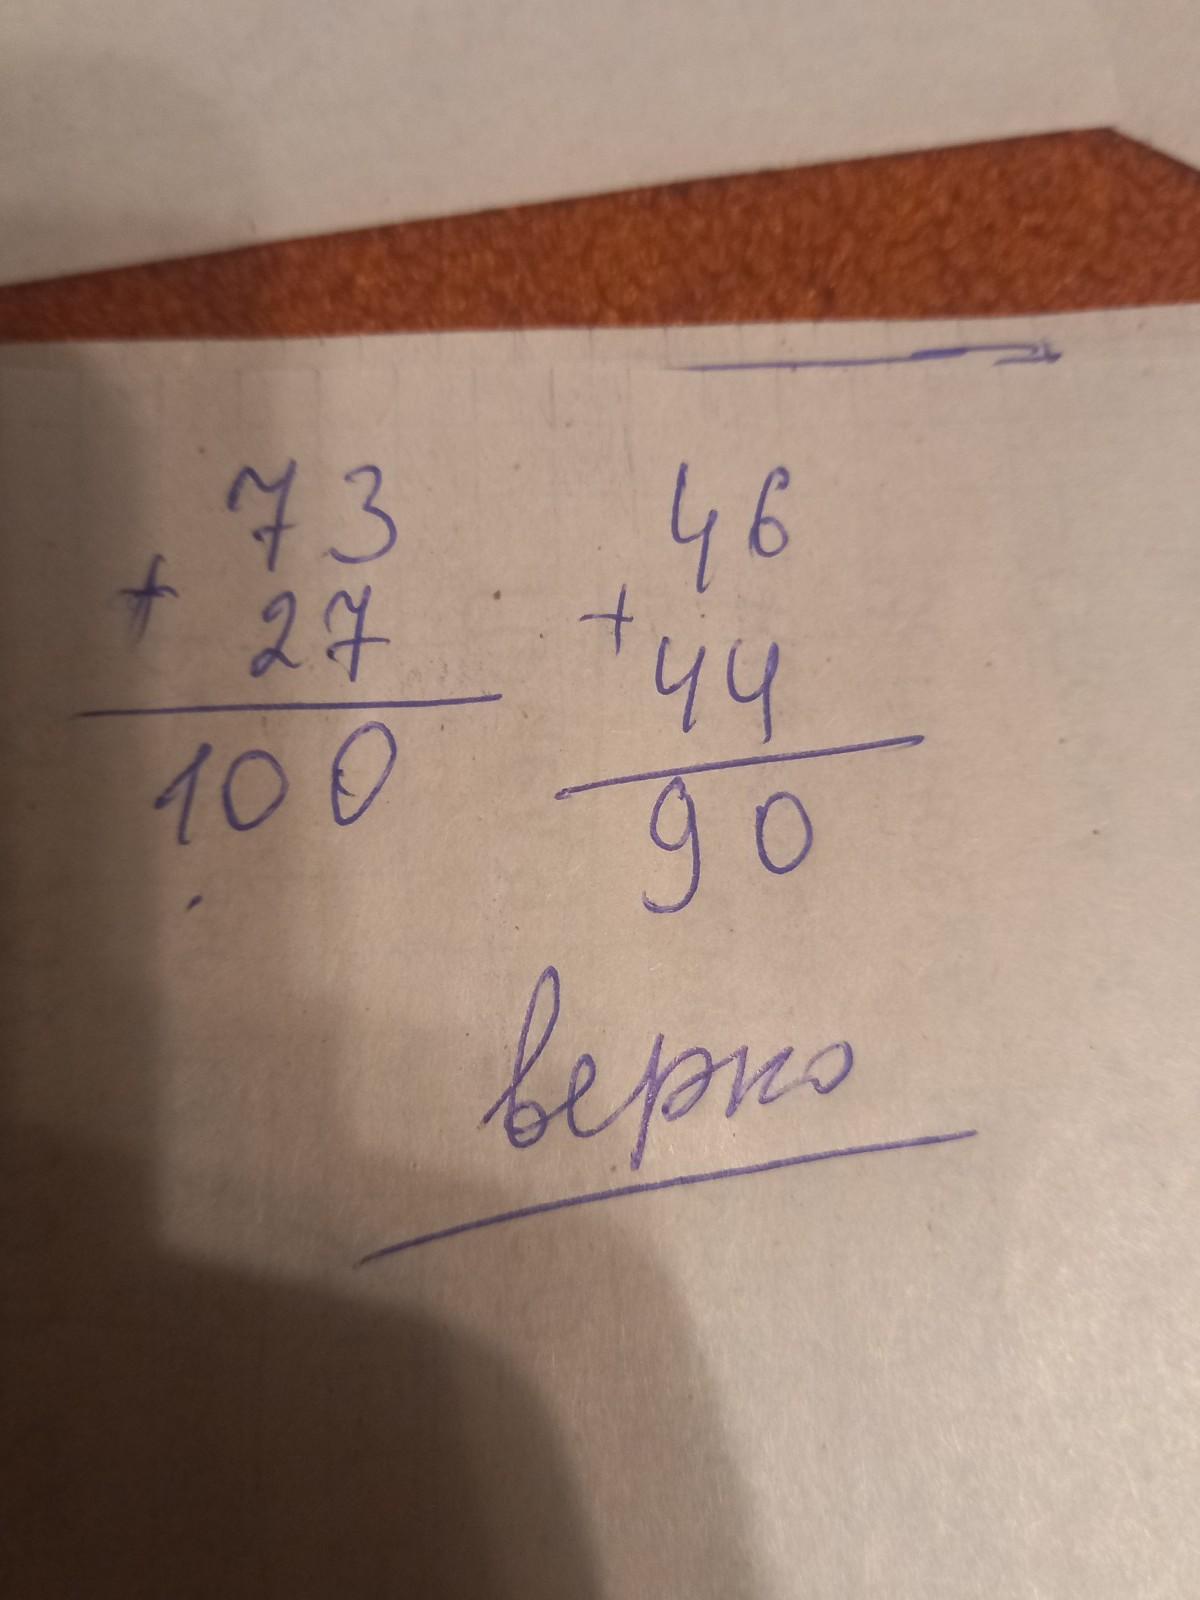 73
+
27
100
46
+
44
90
верно